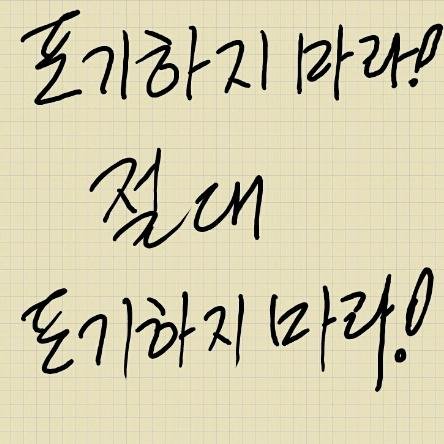 포기하지 마라!
절대
포기하지 마라!